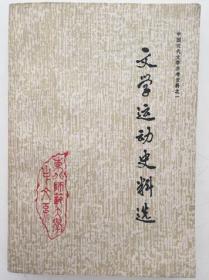 中国现代文学参考资料之一
文学运动史料选
中文系